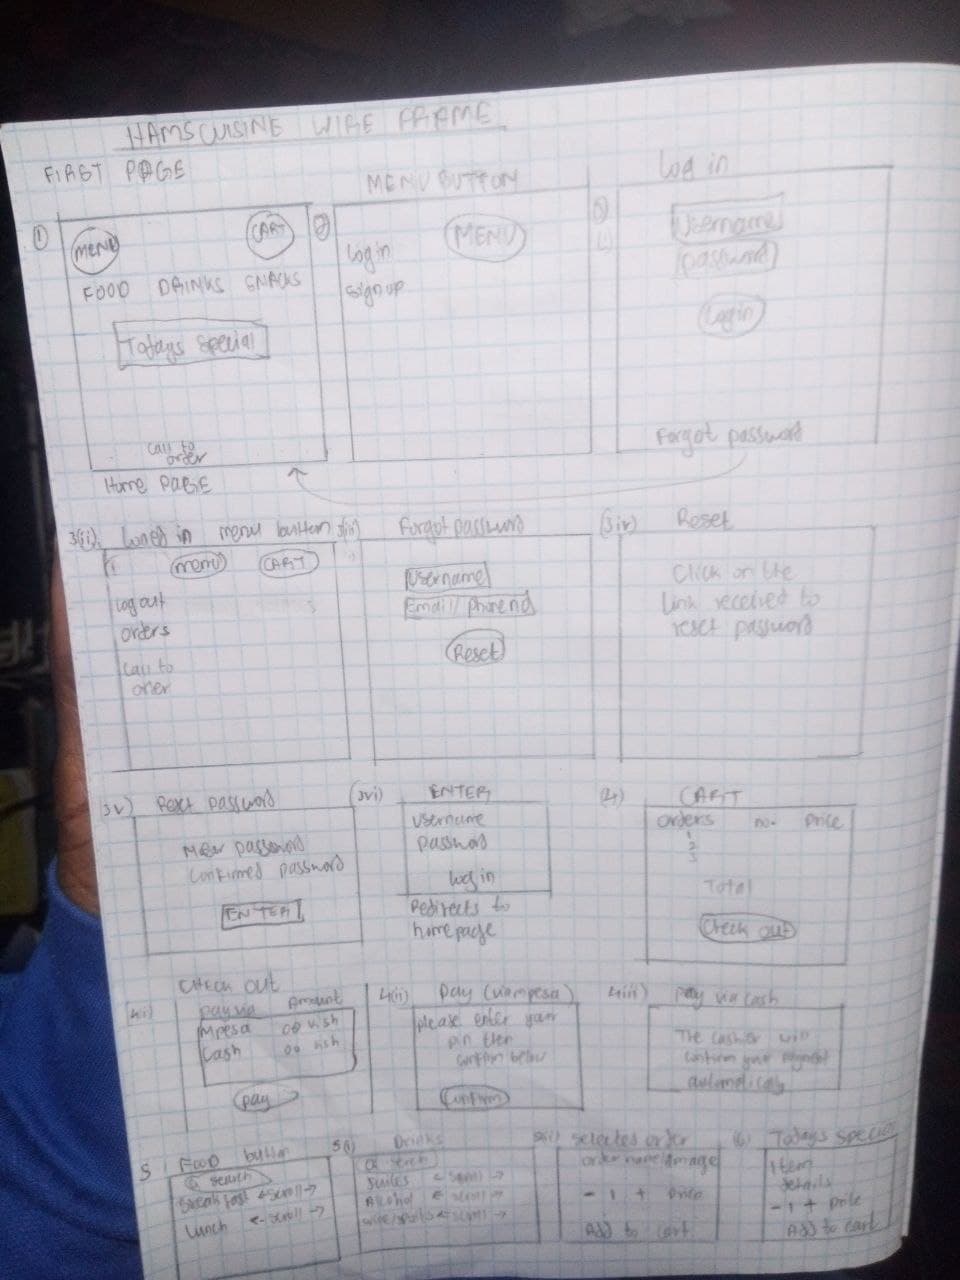 HAMSCUISINE WIRE FRAME
FIRST PAGE
MENU BUTTON
Log in
1
MENU
CART
FOOD DRINKS SNACKS
Todays Special
Call to
order
Home PAGE
2
MENU
Log in
Sign up
Username
password
Login
Forgot password
3(ii) Loged in menu button
menu
CART
Log out
orders
Call to
orer
Forgot password
Username
Email/
Reset
(3iv) Reset
Click on the
Link received to
reset password
3v)
password
New password
Confirmed password
ENTER
(3vi) ENTER
Username
password
log in
Redirects to
homepage
(4) CART
orders no. price
1
2
3
Total
Check out
4i)
CHECK OUT
pay via Amount
Mpesa
Cash
pay
4(ii) Pay (via mpesa)
please enter your
pin then
confirm below
Confirm
4iii) Pay via cash
The cashier will
confirm your payment
5 Food button
Q search
Breakfast <-scroll->
Lunch <-scroll->
5(i) Drinks
<-scroll->
Alcohol <-scroll->
<-scroll->
selected order
order name/image
- 1 + price
Add to cart
(6) Todays special
Item
details
- 1 + price
Add to cart